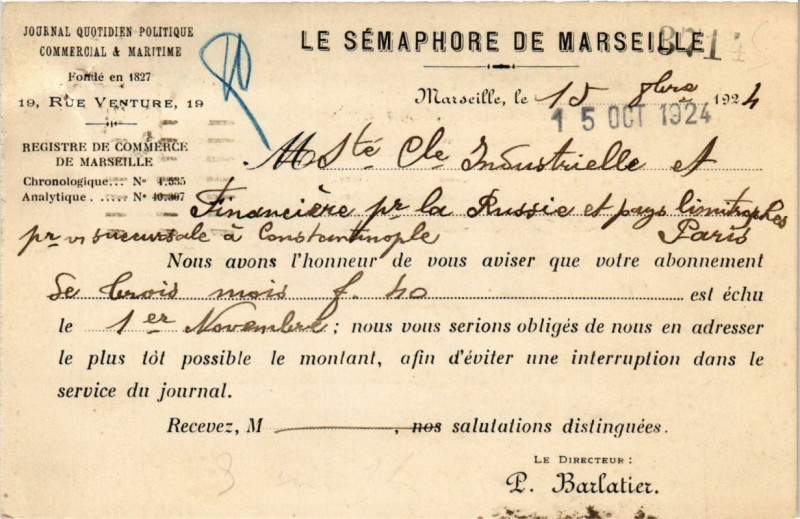 JOURNAL QUOTIDIEN POLITIQUE
COMMERCIAL & MARITIME
Fondé en 1827
19, RUE VENTURE, 19
REGISTRE DE COMMERCE
DE MARSEILLE
Chronologique... Nº 4.535
Analytique. ..... Nº 40.307
LE SÉMAPHORE DE MARSEILLE
3714
Marseille, le 15 8bre 1924
15 OCT 1924
M Sté Cle Industrielle et
Financière pr la Russie et pays limitrophes
pr vs succursale à Constantinople Paris
Nous avons l'honneur de vous aviser que votre abonnement
de trois mois f. 40 est échu
le 1er Novembre ; nous vous serions obligés de nous en adresser
le plus tôt possible le montant, afin d'éviter une interruption dans le
service du journal.
Recevez, M , nos salutations distinguées.
LE DIRECTEUR :
P. Barlatier.